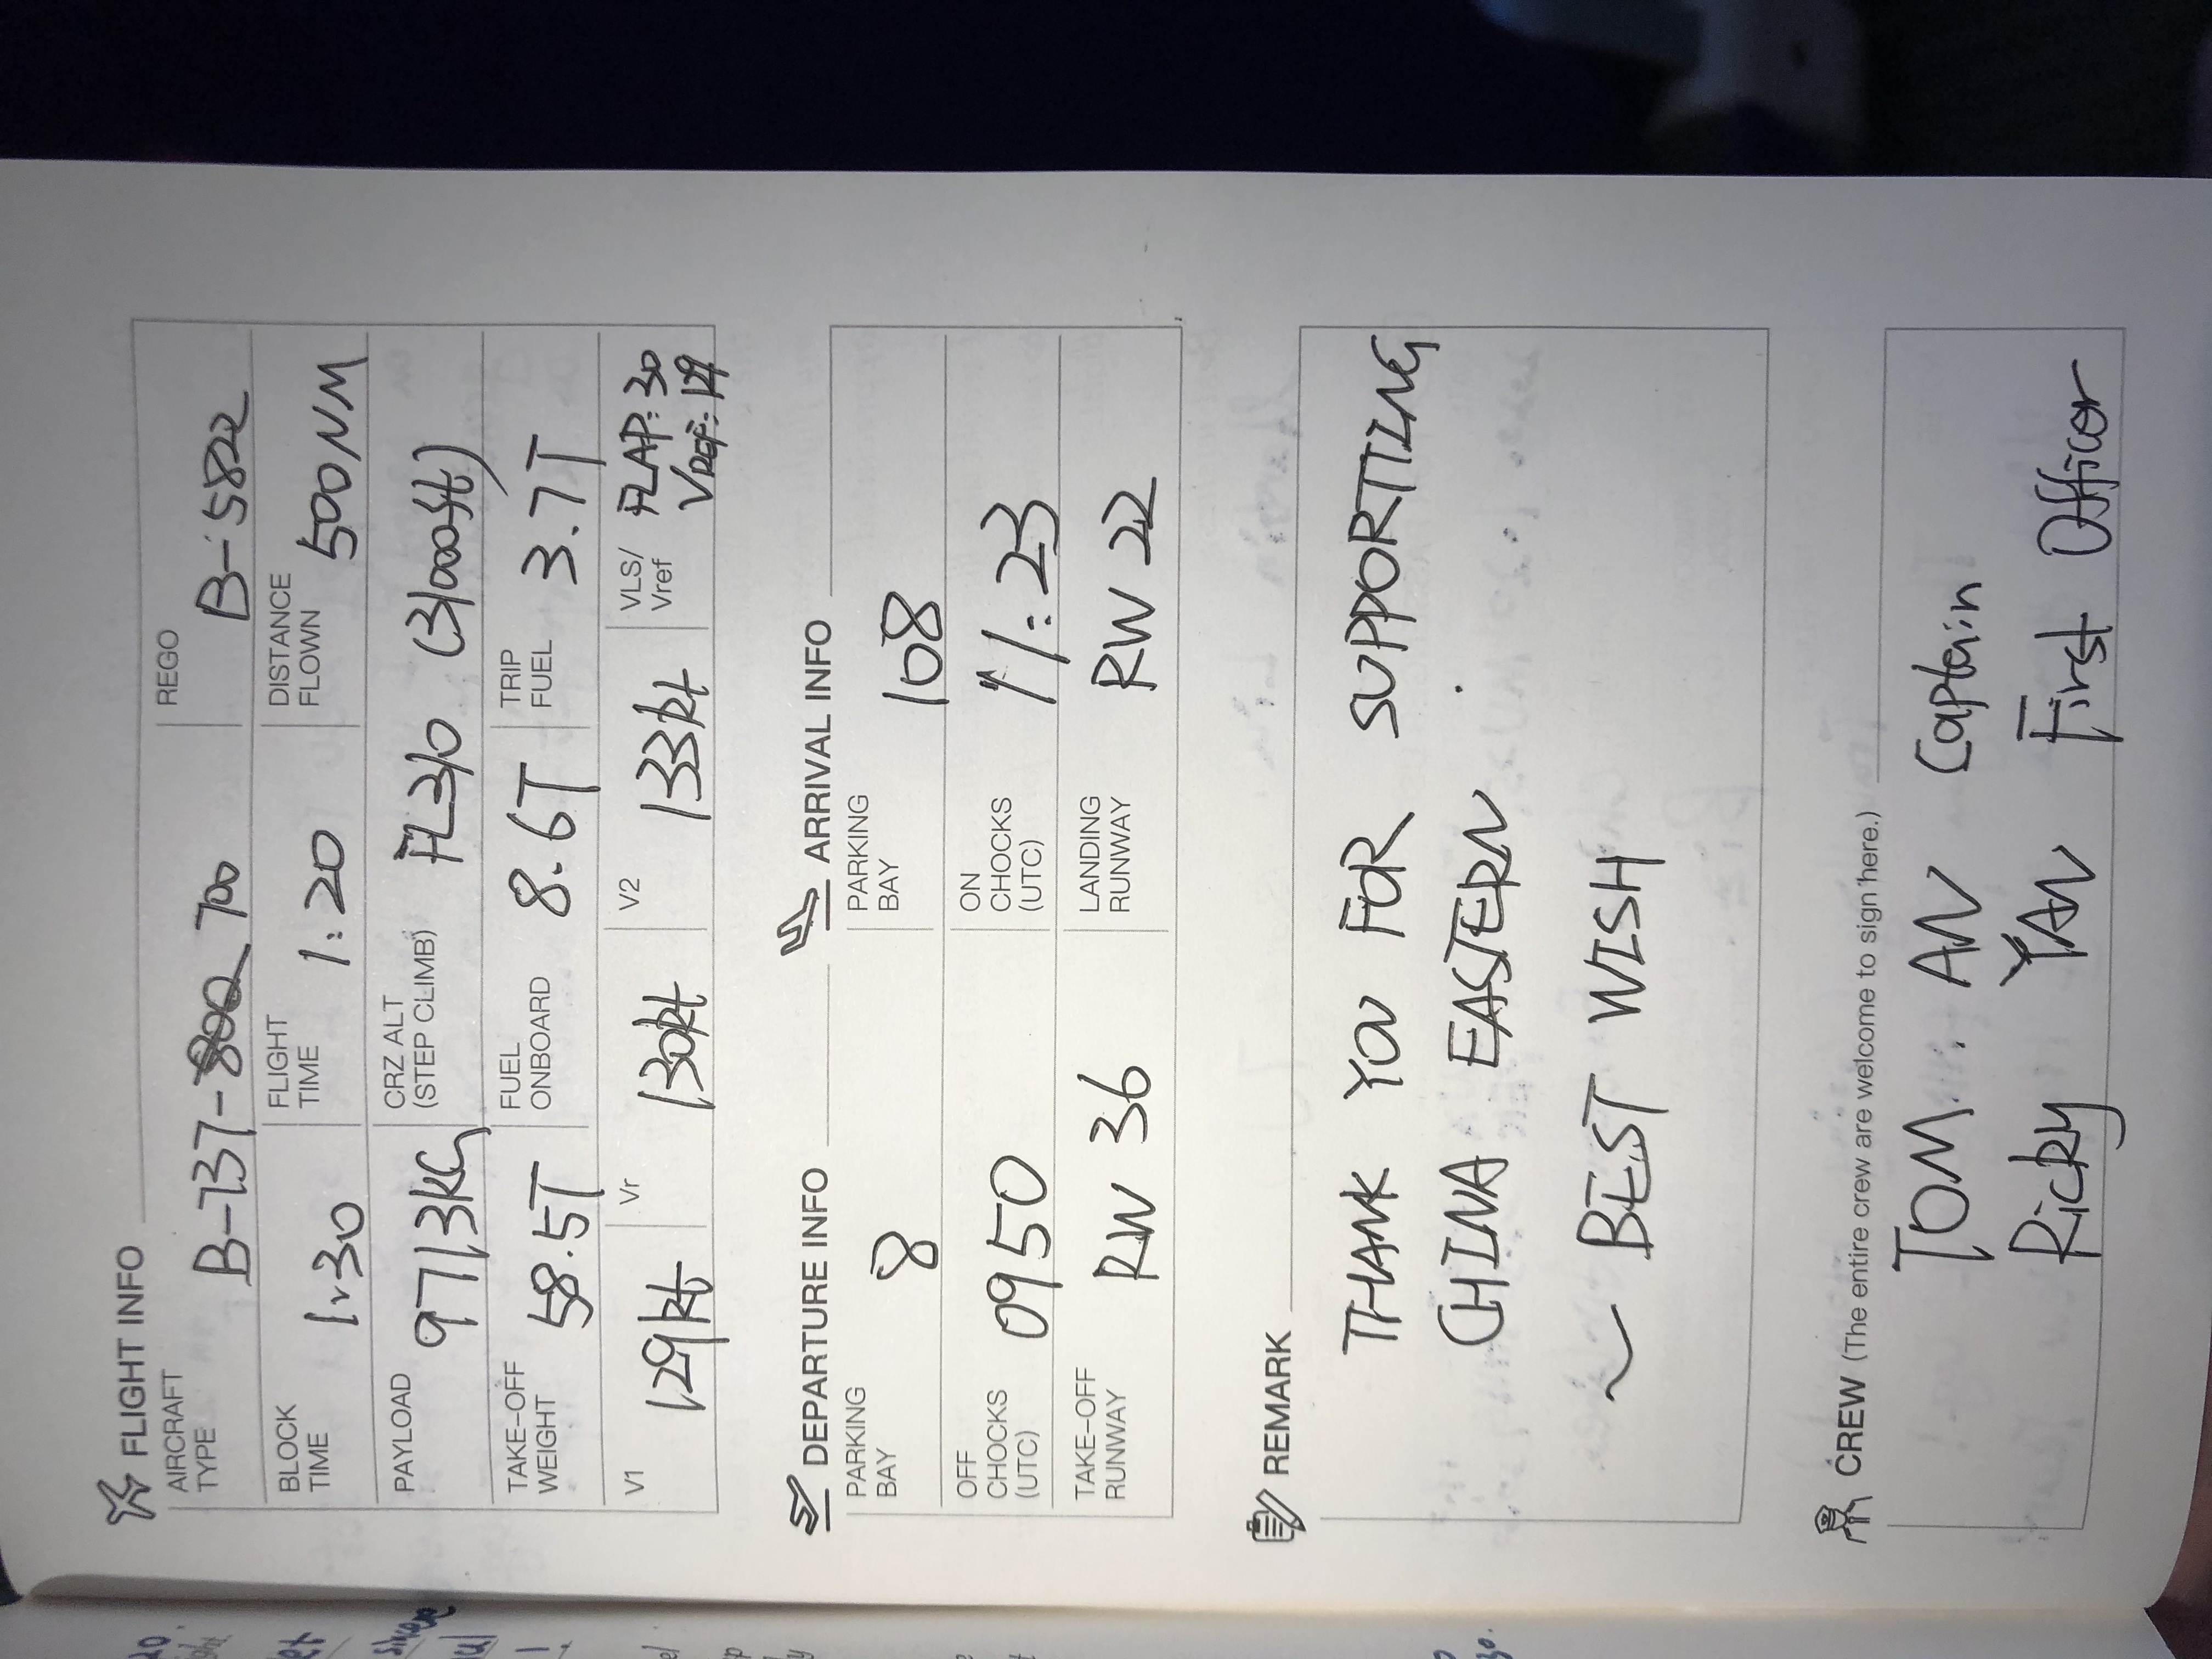 FLIGHT INFO
AIRCRAFT TYPE B-737-800 700
REGO B-5822
BLOCK TIME 1:30
FLIGHT TIME 1:20
DISTANCE FLOWN 500NM
PAYLOAD 9713KG
CRZ ALT (STEP CLIMB) FL310 (31000ft)
TAKE-OFF WEIGHT 58.5T
FUEL ONBOARD 8.6T
TRIP FUEL 3.7T
V1 129kt
Vr 130kt
V2 133kt
VLS/ Vref FLAP: 30
VREF: 129
DEPARTURE INFO
PARKING BAY 8
OFF CHOCKS (UTC) 0950
TAKE-OFF RUNWAY RW 36
ARRIVAL INFO
PARKING BAY 108
ON CHOCKS (UTC) 11:23
LANDING RUNWAY RW 22
REMARK
THANK YOU FOR SUPPORTTING
CHINA EASTERN
~ BEST WISH
CREW (The entire crew are welcome to sign here.)
TOM. AN Captain
Ricky YAN First Officer